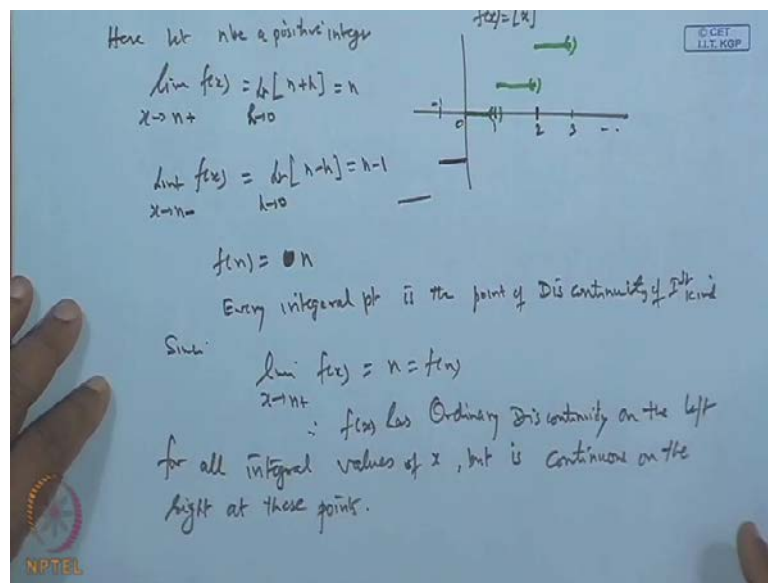 f(x) = [x]
© CET
I.I.T. KGP
Here let n be a positive integer
lim f(x) = lt [n+h] = n
x→n+ h→0
-1 0 1 2 3 ...
limt f(x) = lt [n-h] = n-1
x→n- h→0
f(n) = n
Every integral pt is the point of Discontinuity of Ist kind
Since
lim f(x) = n = f(n)
x→n+
∴ f(x) has Ordinary Discontinuity on the left
for all integral values of x, but is continuous on the
right at these points.
NPTEL